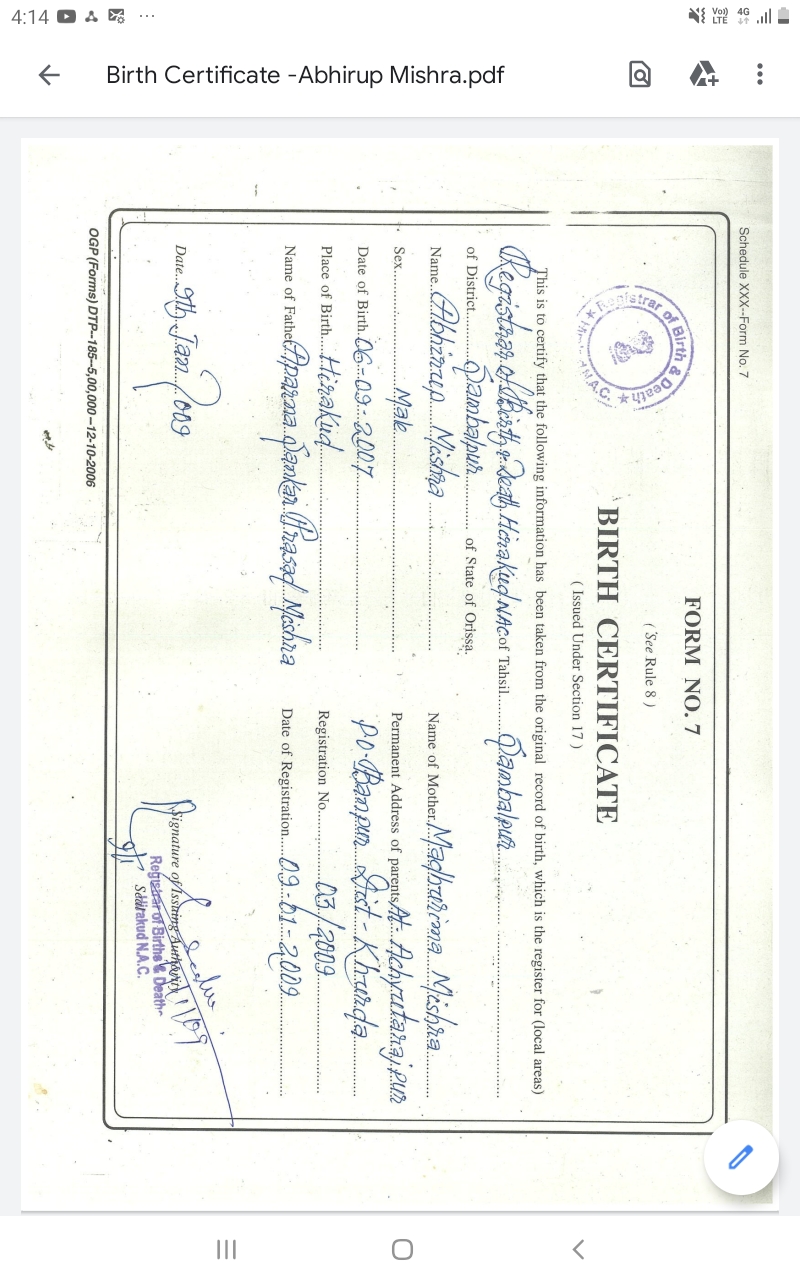 4:14
Vo)) LTE 4G
Birth Certificate -Abhirup Mishra.pdf
Schedule XXX--Form No.7
FORM NO. 7
( See Rule 8 )
BIRTH CERTIFICATE
( Issued Under Section 17 )
Registrar of Birth & Death
N.A.C.
This is to certify that the following information has been taken from the original record of birth, which is the register for (local areas)
Registrar of Birth & Death, Hirakud NAC of Tahsil Sambalpur
of District Sambalpur of State of Orissa.
Name Abhirup Mishra
Sex Male
Date of Birth 06-09-2007
Place of Birth Hirakud
Name of Father Aparna Sankar Prasad Mishra
Name of Mother Madhurima Mishra
Permanent Address of parents At- Achyutarajpur
PO- Banpur Dist - Khurda
Registration No. 03/2009
Date of Registration 09-01-2009
Date 9th Jan 2009
Signature of Issuing Authority
Seal
Registrar of Births & Death
Hirakud N.A.C.
OGP (Forms) DTP--185--5,00,000--12-10-2006